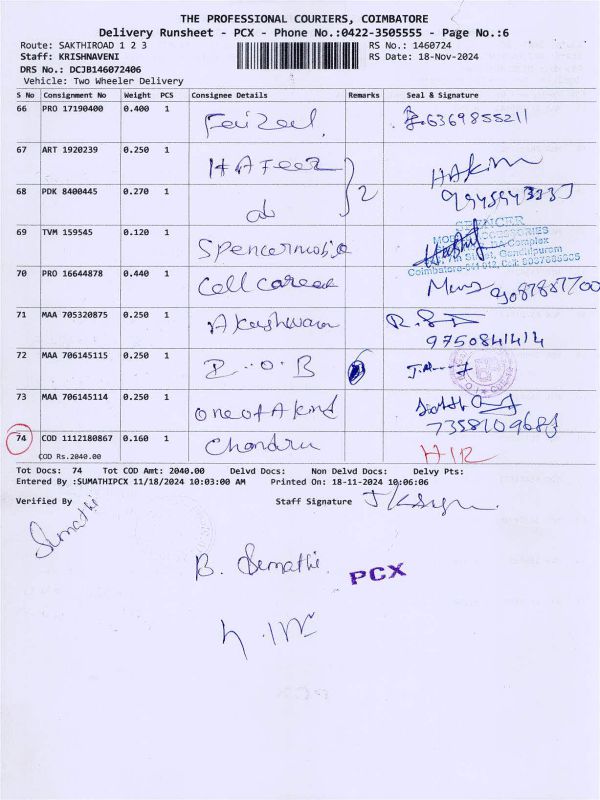 THE PROFESSIONAL COURIERS, COIMBATORE
Delivery Runsheet - PCX - Phone No.:0422-3505555 - Page No.:6
Route: SAKTHIROAD 1 2 3 RS No.: 1460724
Staff: KRISHNAVENI RS Date: 18-Nov-2024
DRS No.: DCJB146072406
Vehicle: Two Wheeler Delivery
S No Consignment No Weight PCS Consignee Details Remarks Seal & Signature
66 PRO 17190400 0.400 1 Faizal. 6369855211
67 ART 1920239 0.250 1 HAFeez HAkim
68 PDK 8400445 0.270 1 do 2
69 TVM 159545 0.120 1 Spencermobile SPENCER
70 PRO 16644878 0.440 1 Cell career
71 MAA 705320875 0.250 1 Akashwara 9750841414
72 MAA 706145115 0.250 1 I.O.B
73 MAA 706145114 0.250 1 one of A kind
74 COD 1112180867 0.160 1 Chandru
COD Rs.2040.00
Tot Docs: 74 Tot COD Amt: 2040.00 Delvd Docs: Non Delvd Docs: Delvy Pts:
Entered By :SUMATHIPCX 11/18/2024 10:03:00 AM Printed On: 18-11-2024 10:06:06
Verified By Staff Signature
Sumathi
B. Sumathi
PCX